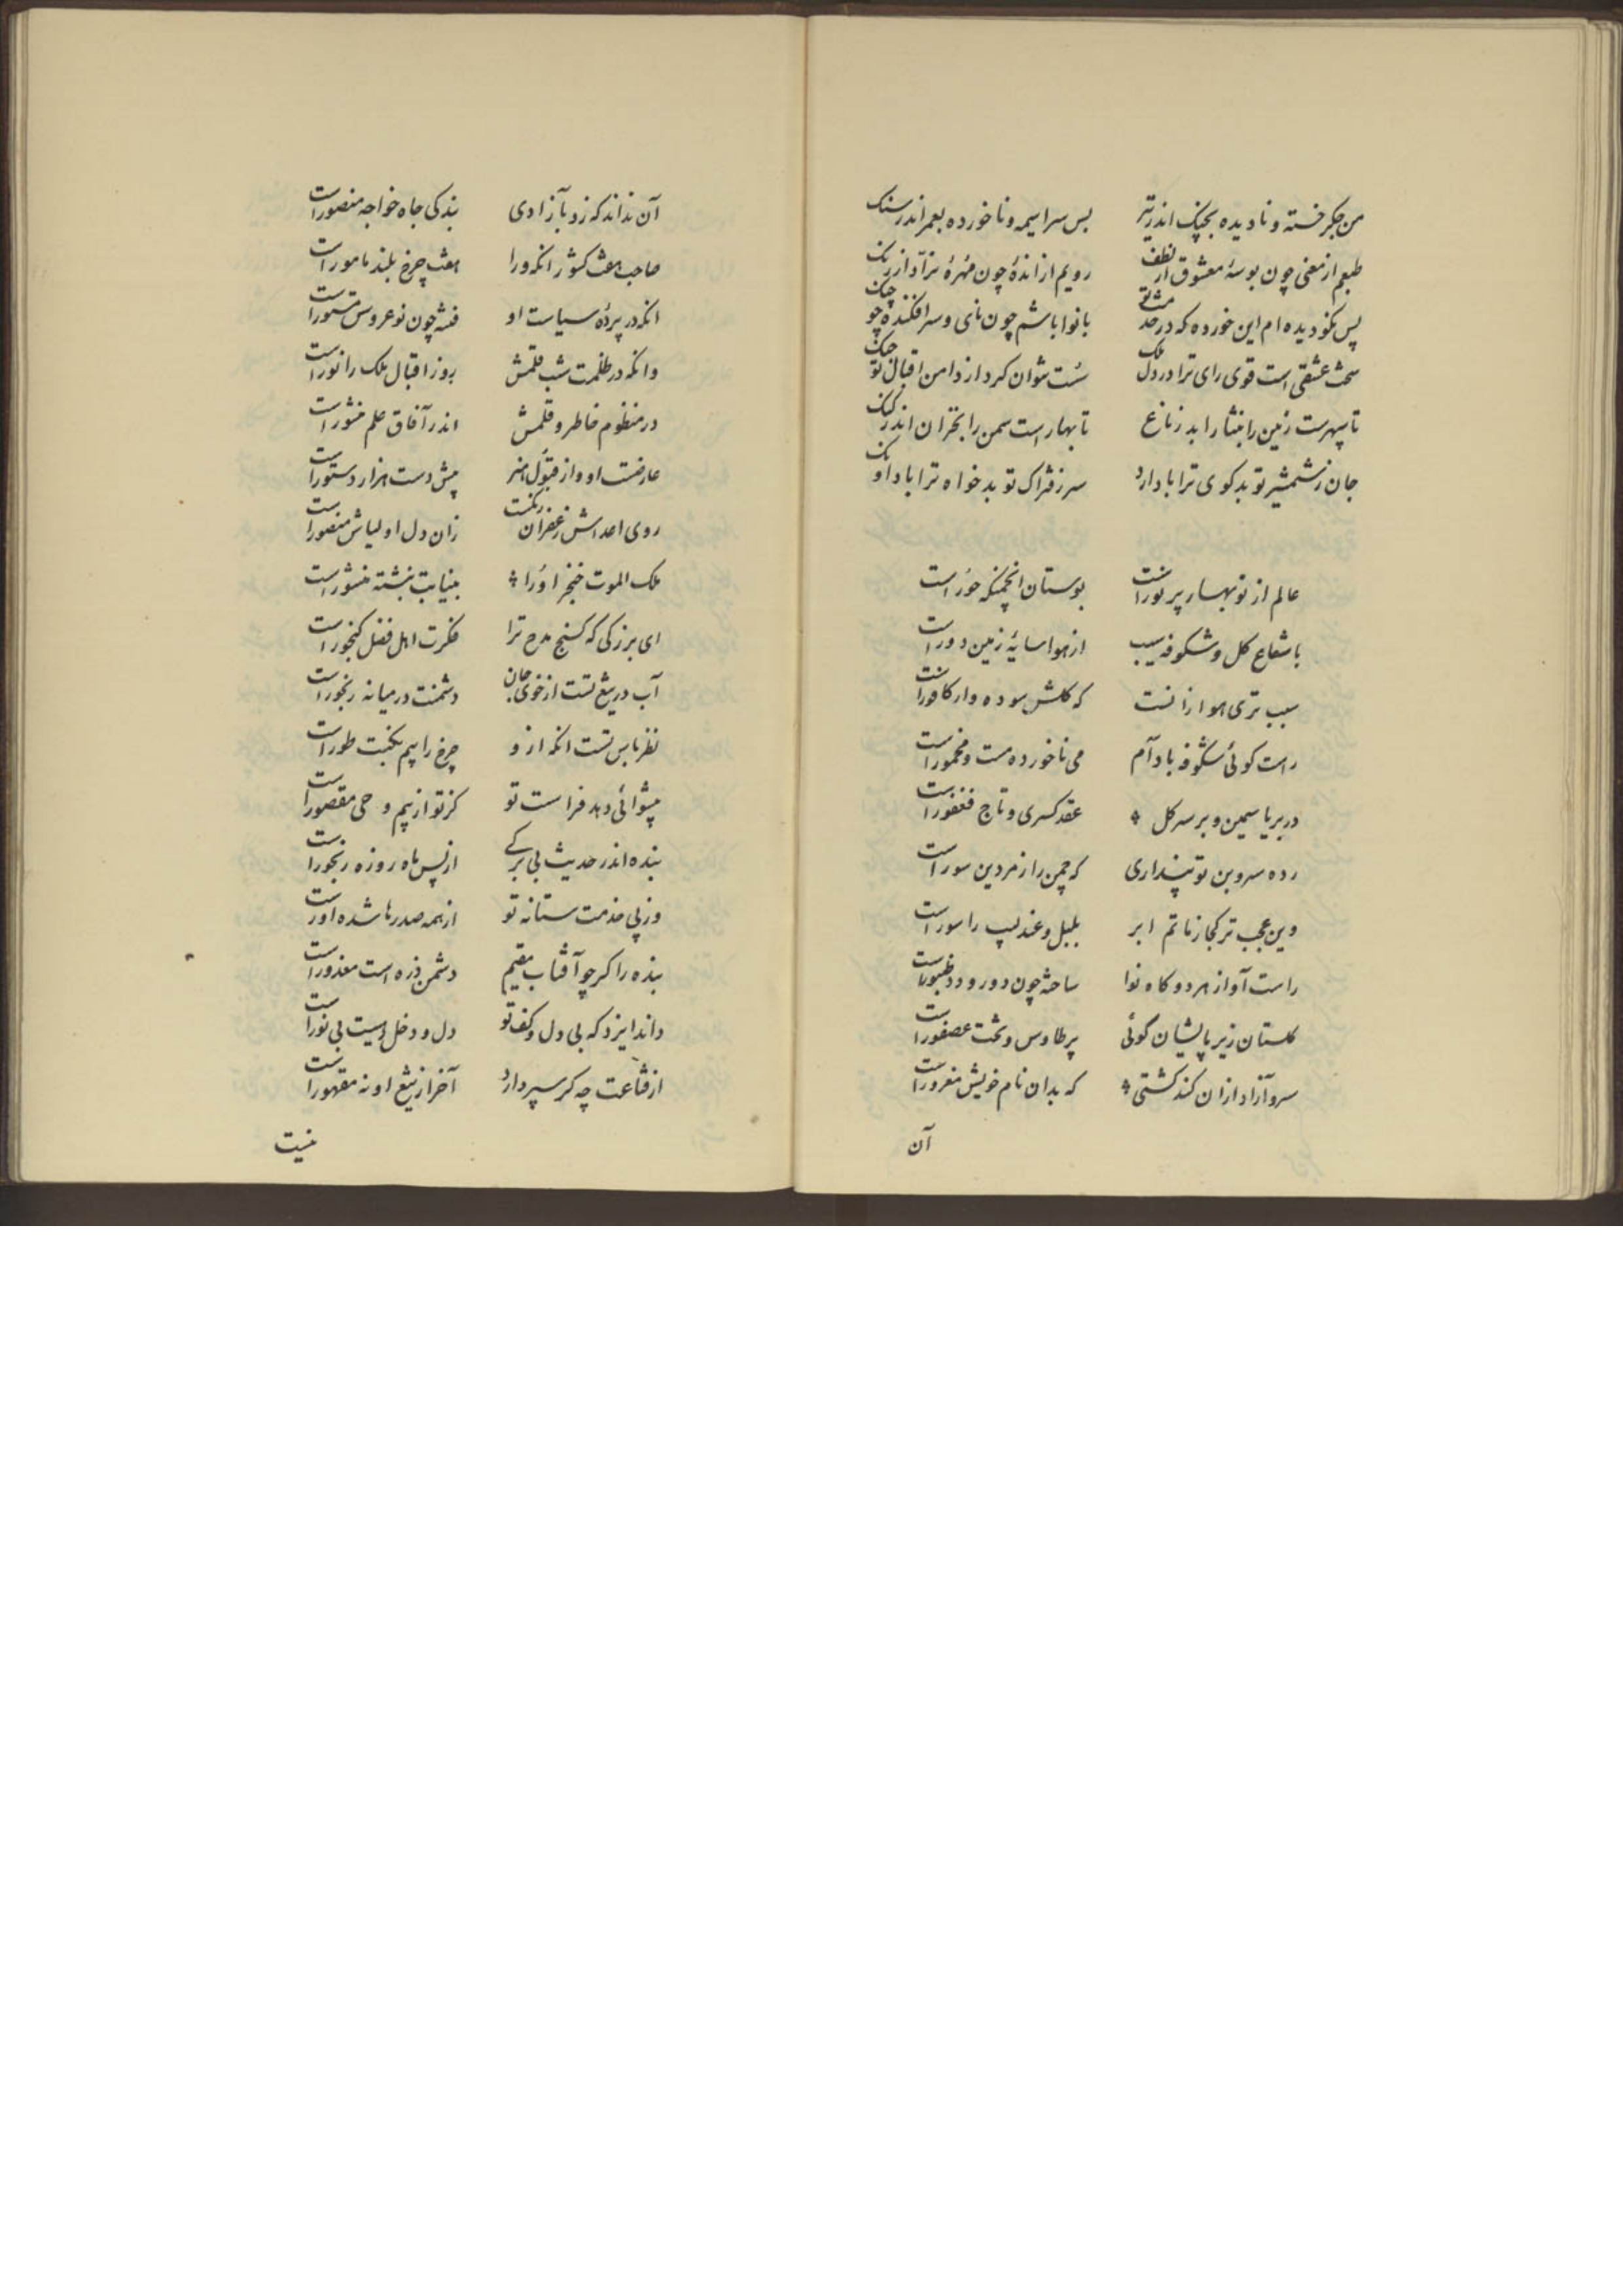 من جگر خسته و نادیده بجنگ اندر تیر    بس سراسیمه و ناخورده بعمر اندر سنک
طبعم از معنی چون بوسهٔ معشوق از لطف    رویم از اندهٔ چون مهرهٔ نراد از رنک
پس نکو دیده ام این خورده که در خدمت تو    بانوا باشم چون نای و سرافکنده چو چنک
سخت عشقی است قوی رای ترا در دل ملک    سست نتوان کرد از دامن اقبال تو چنک
تا سپهرست زمین را بنثار اندر زناغ    تا بهار است سمن را بخزان اندر کنک
جان ز شمشیر تو بدکوی ترا باد آرد    سر ز فتراک تو بدخواه ترا باد آونک
عالم از نوبهار پر نور است    بوستان انجمنکه حور است
با شعاع کل و شکوفه سیب    از هوا سایهٔ زمین دور است
سبب تری هوا زانست    که کلش سوده وار کافور است
راست کوئی شکوفه بادآم    می ناخورده مست و مخمور است
در بر یاسمین و بر سر کل    عقد کسری و تاج فغفور است
رده سروبن تو پنداری    که چمن را زمردین سور است
وین عجب تر کجا ز ماتم ابر    بلبل و عندلیب را سور است
راست آواز هر دو کاه نوا    ساخته چون دو رود و طنبور است
کلستان زیر پایشان گوئی    پر طاوس و تخت عصفور است
سرو آزاد ازان کند کشتی    که بدان نام خویش مغرور است
آن
آن نداند که زو بآزادی    بندکی جاه خواجه منصور است
صاحب هفت کشور انکه ورا    هفت چرخ بلند مامور است
انکه در پردهٔ سیاست او    فتنه چون نوعروس مستور است
وانکه در ظلمت شب قلمش    روز اقبال ملک را نور است
در منظوم خاطر و قلمش    اندر آفاق علم منثور است
عارضت او و از قبول هنر    پیش دست هزار دستور است
روی اعداش زعفران رنکست    زان دل اولیاش منصور است
ملک الموت خنجر او را    بنیابت نبشته منشور است
ای بزرکی که کنج مدح ترا    فکرت اهل فضل کنجور است
آب در تیغ تست از خوی جان    دشمنت در میانه رنجور است
نظر باس تست انکه ازو    چرخ را بیم نکبت طور است
پیشوائی دهد فراست تو    کز تو از بیم وحی مقصور است
بنده اندر حدیث بی برکی    از پس ماه روزه رنجور است
وز پی خدمت ستانه تو    از همه صدرها شده اور است
بنده را کر چو آفتاب مقیم    دشمن ذره است معذور است
داند ایزد که بی دل و کف تو    دل و دخل بیست بی نور است
از قناعت چه کر سپر دارد    آخر از تیغ او نه مقهور است
نیست